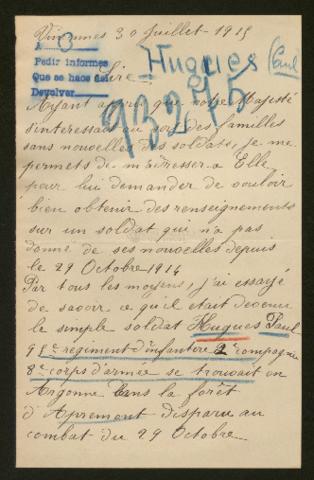 Vincennes 30 Juillet 1915
A 3
Pedir informes
Que se hace saber
Devolver
Hugues Paul
93275
Sire,
Ayant appris que votre Majesté
s'interessait au sort des familles
sans nouvelles des soldats, je me
permets de m'adresser a Elle
pour lui demander de vouloir
bien obtenir des renseignements
sur un soldat qui n'a pas
donné de ses nouvelles depuis
le 29 Octobre 1914
Par tous les moyens, j'ai essayé
de savoir ce qu'il etait devenu
le simple soldat Hugues Paul
regiment d'infanterie 2e compagnie
8e corps d'armée se trouvait en
Argonne dans la forêt
d'Apremont disparu au
combat du 29 Octobre